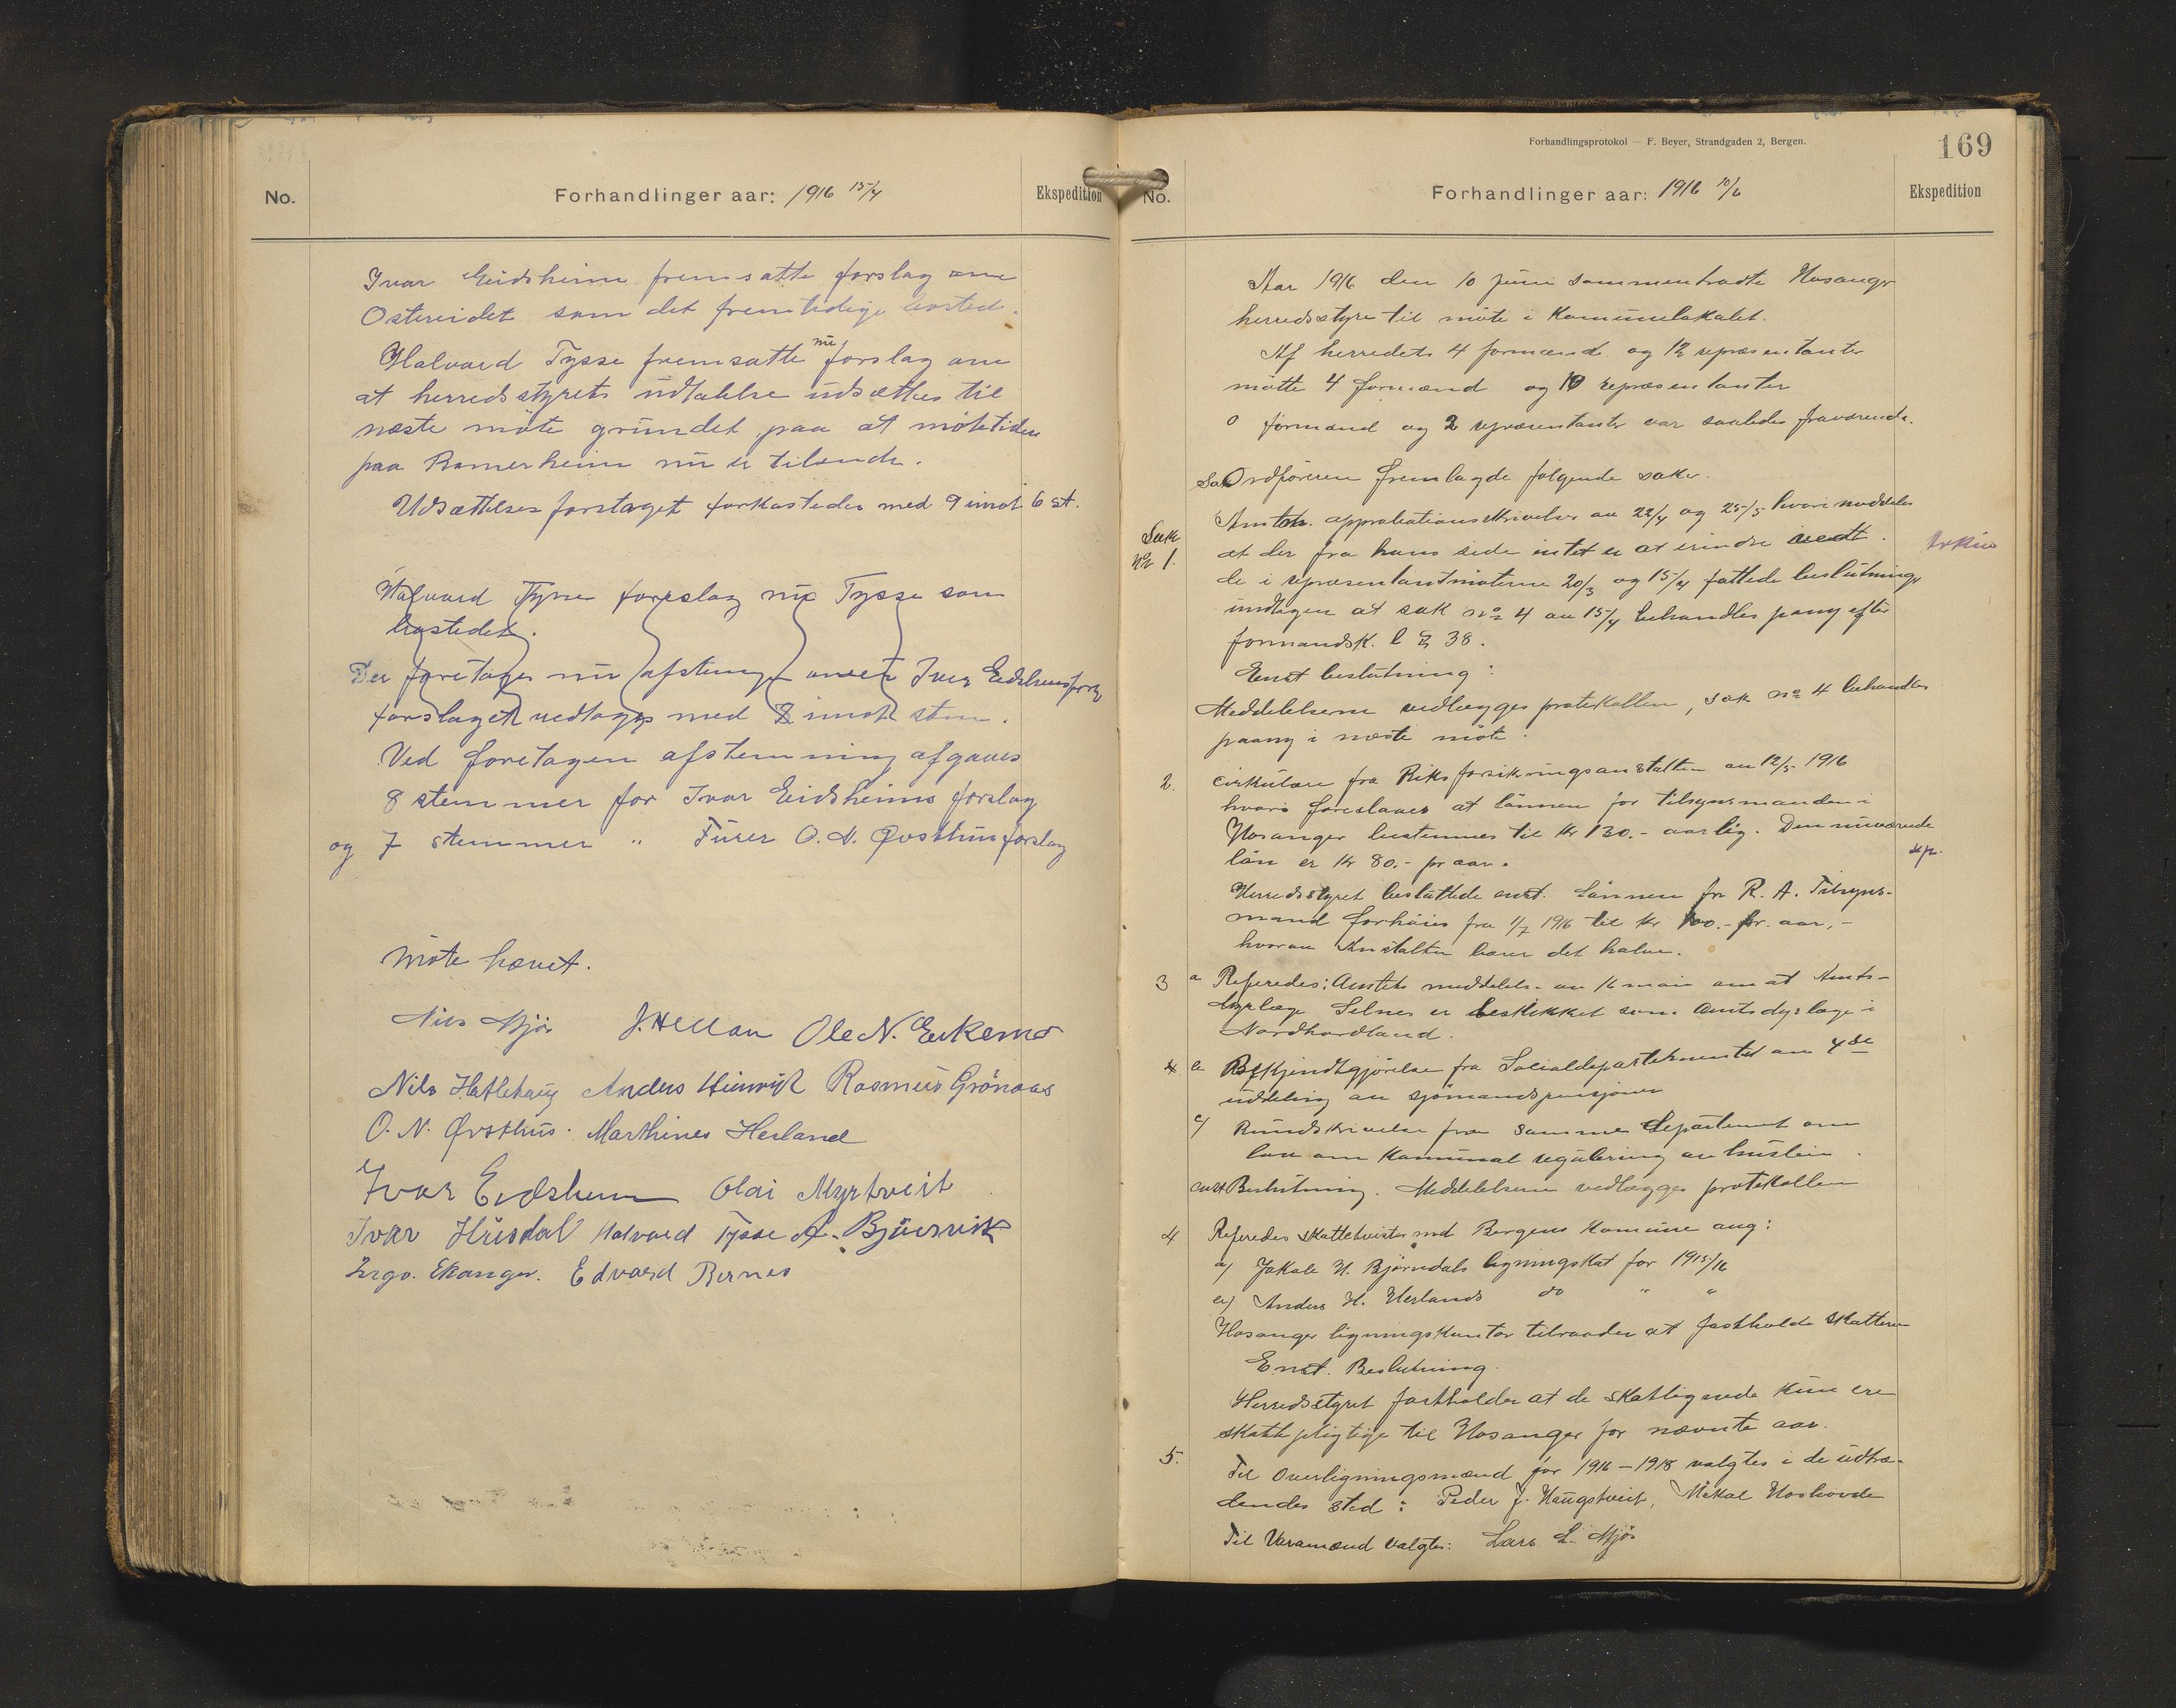 No.
Forhandlinger aar: 1916 15/4
Ekspedition
Ivar Eidsheim fremsatte forslag om
Ostereidet som det fremtidige bosted.
Halvard Tysse fremsatte nu forslag om
at herredsstyrets udtalelse udsættes til
næste møte grundet paa at møtetiden
paa Romerheim nu er tilende.
Udsættelsesforslaget forkastedes med 9 imot 6 st.
Halvard Tysse foreslog nu Tysse som
bostedet.
Der foretages nu afstemn over Ivar Eidsheims forsl
forslaget vedtoges med 8 imot stem.
Ved foretagen afstemning afgaves
8 stemmer for Ivar Eidsheims forslag
og 7 stemmer " Furer O. N. Øvsthus forslag
Møte hævet.
Nils Mjøs J. Hellan Ole N. Eikemo
Nils Hatlehaug Anders Heinvik Rasmus Grønaas
O. N. Øvsthus. Marthines Herland
Ivar Eidsheim Olai Myrtveit
Ivar Husdal Halvard Tysse A. Bjørsvik
Brgo. Ekanger. Edvard Bernes
Forhandlingsprotokol — F. Beyer, Strandgaden 2, Bergen.
169
No.
Forhandlinger aar: 1916 10/6
Ekspedition
Aar 1916 den 10 juni sammentraadte Hosanger
herredsstyre til møte i Komunelokalet.
Af herredets 4 formænd og 12 repræsentanter
møtte 4 formænd og 10 repræsentanter
0 formænd og 2 repræsentanter var saaledes fraværende.
Sak Ordføreren fremlagde følgende saker.
Sak No 1. Amtets approbationsskrivelser av 22/4 og 25/5 hvori meddeles
at der fra hans side intet er at erindre vedt. Arkiv
de i repræsentantmøterne 20/3 og 15/4 fattede beslutninger
undtagen at sak no 4 av 15/4 behandles paany efter
formandsk. l § 38.
Enst beslutning:
Meddelelserne vedlægges protokollen, sak no 4 behandles
paany i næste møte.
2. Cirkulære fra Riksforsikringsanstalten av 12/5 1916
hvori foreslaaes at lønnen for tilsynsmanden i
Hosanger bestemmes til kr 130.- aarlig. Den nuværende
løn er kr 80.- pr aar. exp.
Herredsstyret besluttede enst. Lønnen for R. A. Tilsyns-
mand forhøies fra 1/7 1916 til kr 100.- pr. aar, -
hvorav Anstalten bærer det halve.
3 a Referedes: Amtets meddelelse av 16 mai om at Amts-
dyrlæge Selnes er beskikket som Amtsdyrlæge i
Nordhordland.
4 b Bekjendtgjørelse fra Socialdepartementet om 4de
uddeling av sjømandspensjoner
c) Rundskrivelse fra samme Departement om
lov om Kommunal regulering av husleie.
enst Beslutning. Meddelelserne vedlægges protokollen
4 Referedes skattetvister med Bergens Komune ang:
a) Jakob H. Bjørndals ligningskat for 1915/16
b) Anders H. Herlands do " "
Hosanger ligningskontor tilraader at fastholde skatterne
Enst. Beslutning.
Herredsstyret fastholder at de skatlignede kun er
skattepligtige til Hosanger for nævnte aar.
5. Til Overligningsmænd for 1916-1918 valgtes i de udtræ-
dendes sted: Peder J. Haugstveit, Mikal Hoshovde
Til Varamænd valgtes: Lars L. Mjøs